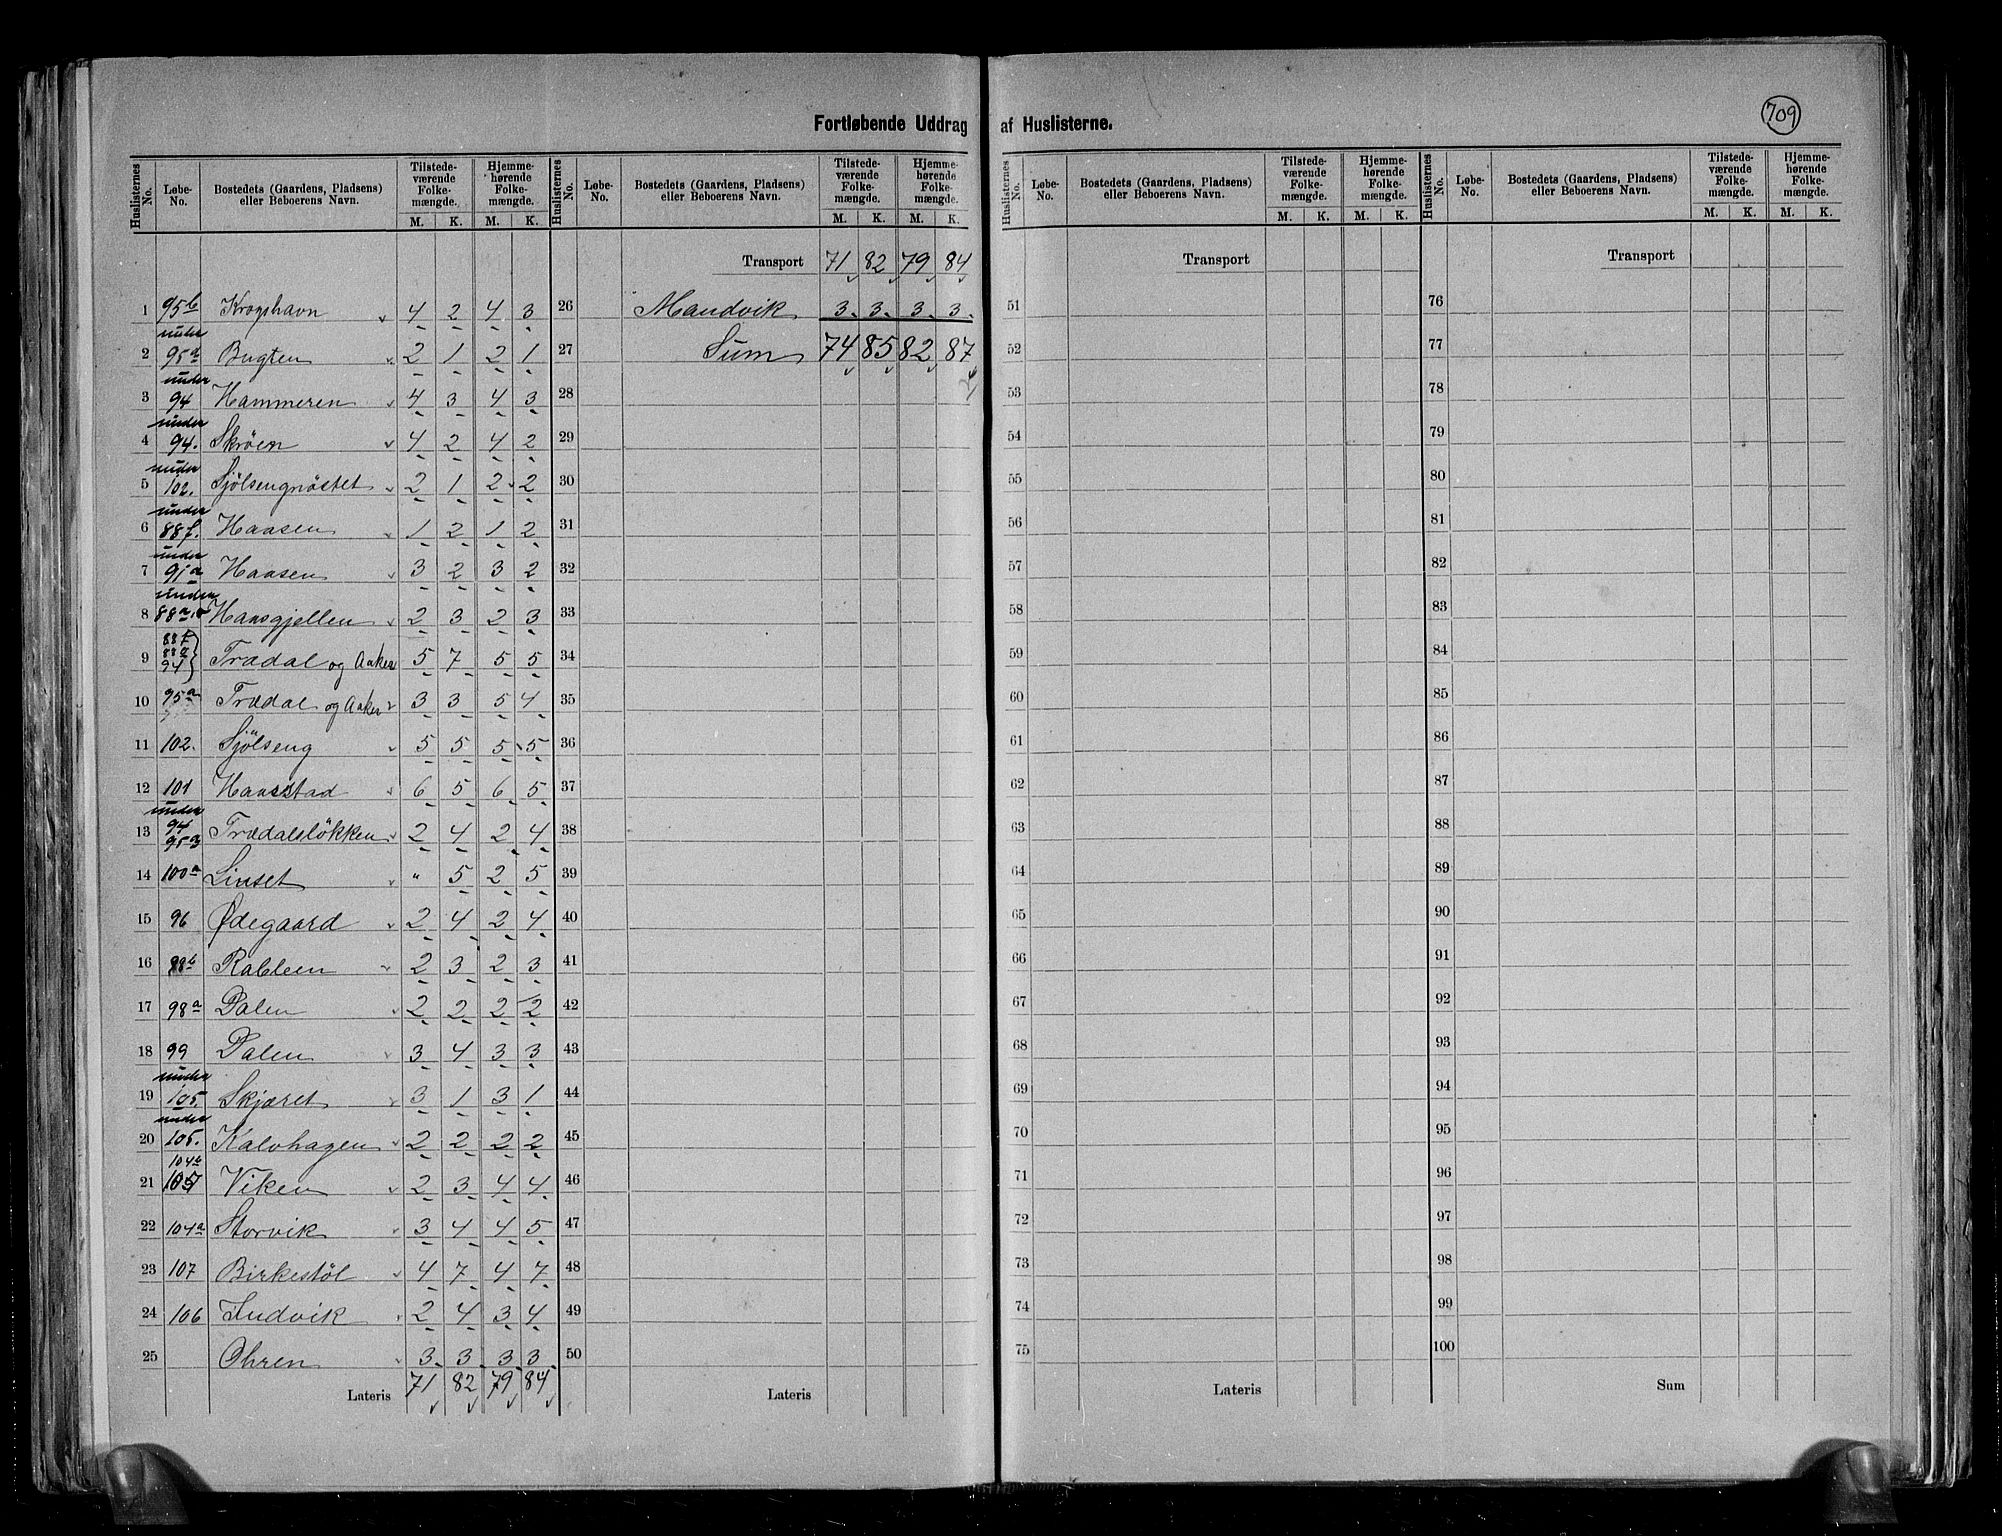 709
Fortløbende Uddrag af Huslisterne.
Huslisternes No. Løbe-No. Bostedets (Gaardens, Pladsens) eller Beboerens Navn. Tilstedeværende Folkemængde. M. K. Hjemmehørende Folkemængde. M. K.
1 95b Krogshavn 4 2 4 3
2 under 95a Bugten 2 1 2 1
3 under 94 Hammeren 4 3 4 3
4 under 94. Skröen 4 2 4 2
5 under 102. Sjölsengnöstet 2 1 2 2
6 under 88f. Haasen 1 2 1 2
7 under 91a Haasen 3 2 3 2
8 under 88a Haasgjellen 2 3 2 3
9 88f 88a 94 Trædal og Aaker 5 7 5 5
10 95a Trædal og Aaker 3 3 5 4
11 102. Sjölseng 5 5 5 5
12 101 Haasstad 6 5 6 5
13 under 94 95a Trædalslökken 2 4 2 4
14 100a Linset " 5 2 5
15 96 Ødegaard 2 4 2 4
16 98b Rableen 2 3 2 3
17 98a Dalen 2 2 2 2
18 99 Dalen 3 4 3 3
19 under 105. Skjæret 3 1 3 1
20 under 105. Kalvhagen 2 2 2 2
21 104b 105 Viken 2 3 4 4
22 104a Storvik 3 4 4 5
23 107 Birkestöl 4 7 4 7
24 106 Indvik 2 4 3 4
25 Ohren 3 3 3 3
Lateris 71 82 79 84
Huslisternes No. Løbe-No. Bostedets (Gaardens, Pladsens) eller Beboerens Navn. Tilstedeværende Folkemængde. M. K. Hjemmehørende Folkemængde. M. K.
Transport 71 82 79 84
26 Mandvik 3 3 3 3
27 Sum 74 85 82 87
28
29
30
31
32
33
34
35
36
37
38
39
40
41
42
43
44
45
46
47
48
49
50
Lateris
Huslisternes No. Løbe-No. Bostedets (Gaardens, Pladsens) eller Beboerens Navn. Tilstedeværende Folkemængde. M. K. Hjemmehørende Folkemængde. M. K.
Transport
51
52
53
54
55
56
57
58
59
60
61
62
63
64
65
66
67
68
69
70
71
72
73
74
75
Lateris
Huslisternes No. Løbe-No. Bostedets (Gaardens, Pladsens) eller Beboerens Navn. Tilstedeværende Folkemængde. M. K. Hjemmehørende Folkemængde. M. K.
Transport
76
77
78
79
80
81
82
83
84
85
86
87
88
89
90
91
92
93
94
95
96
97
98
99
100
Sum